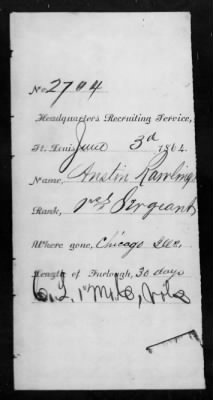 No 2794
Headquarters Recruiting Service,
St. Louis June 3d 1864.
Name, Austin Rawlings
Rank, Sergeant
Where gone, Chicago Ills.
Length of Furlough, 30 days